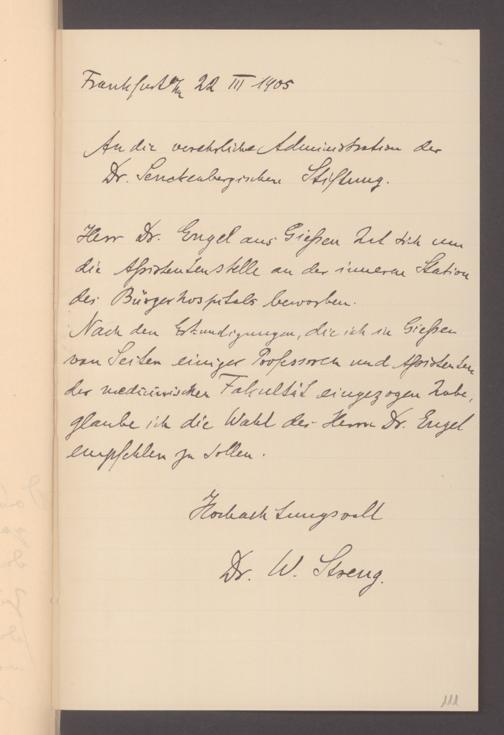 Frankfurt a/M 22 III 1905
An die verehrliche Administration der
Dr. Senckenbergischen Stiftung.
Herr Dr. Engel aus Gießen hat sich um
die Assistentenstelle an der inneren Station
des Bürgerhospitals beworben.
Nach den Erkundigungen, die ich in Gießen
von Seiten einiger Professoren und Assistenten
der medicinischen Fakultät eingezogen habe,
glaube ich die Wahl des Herrn Dr. Engel
empfehlen zu sollen.
Hochachtungsvoll
Dr. W. Streng.
111